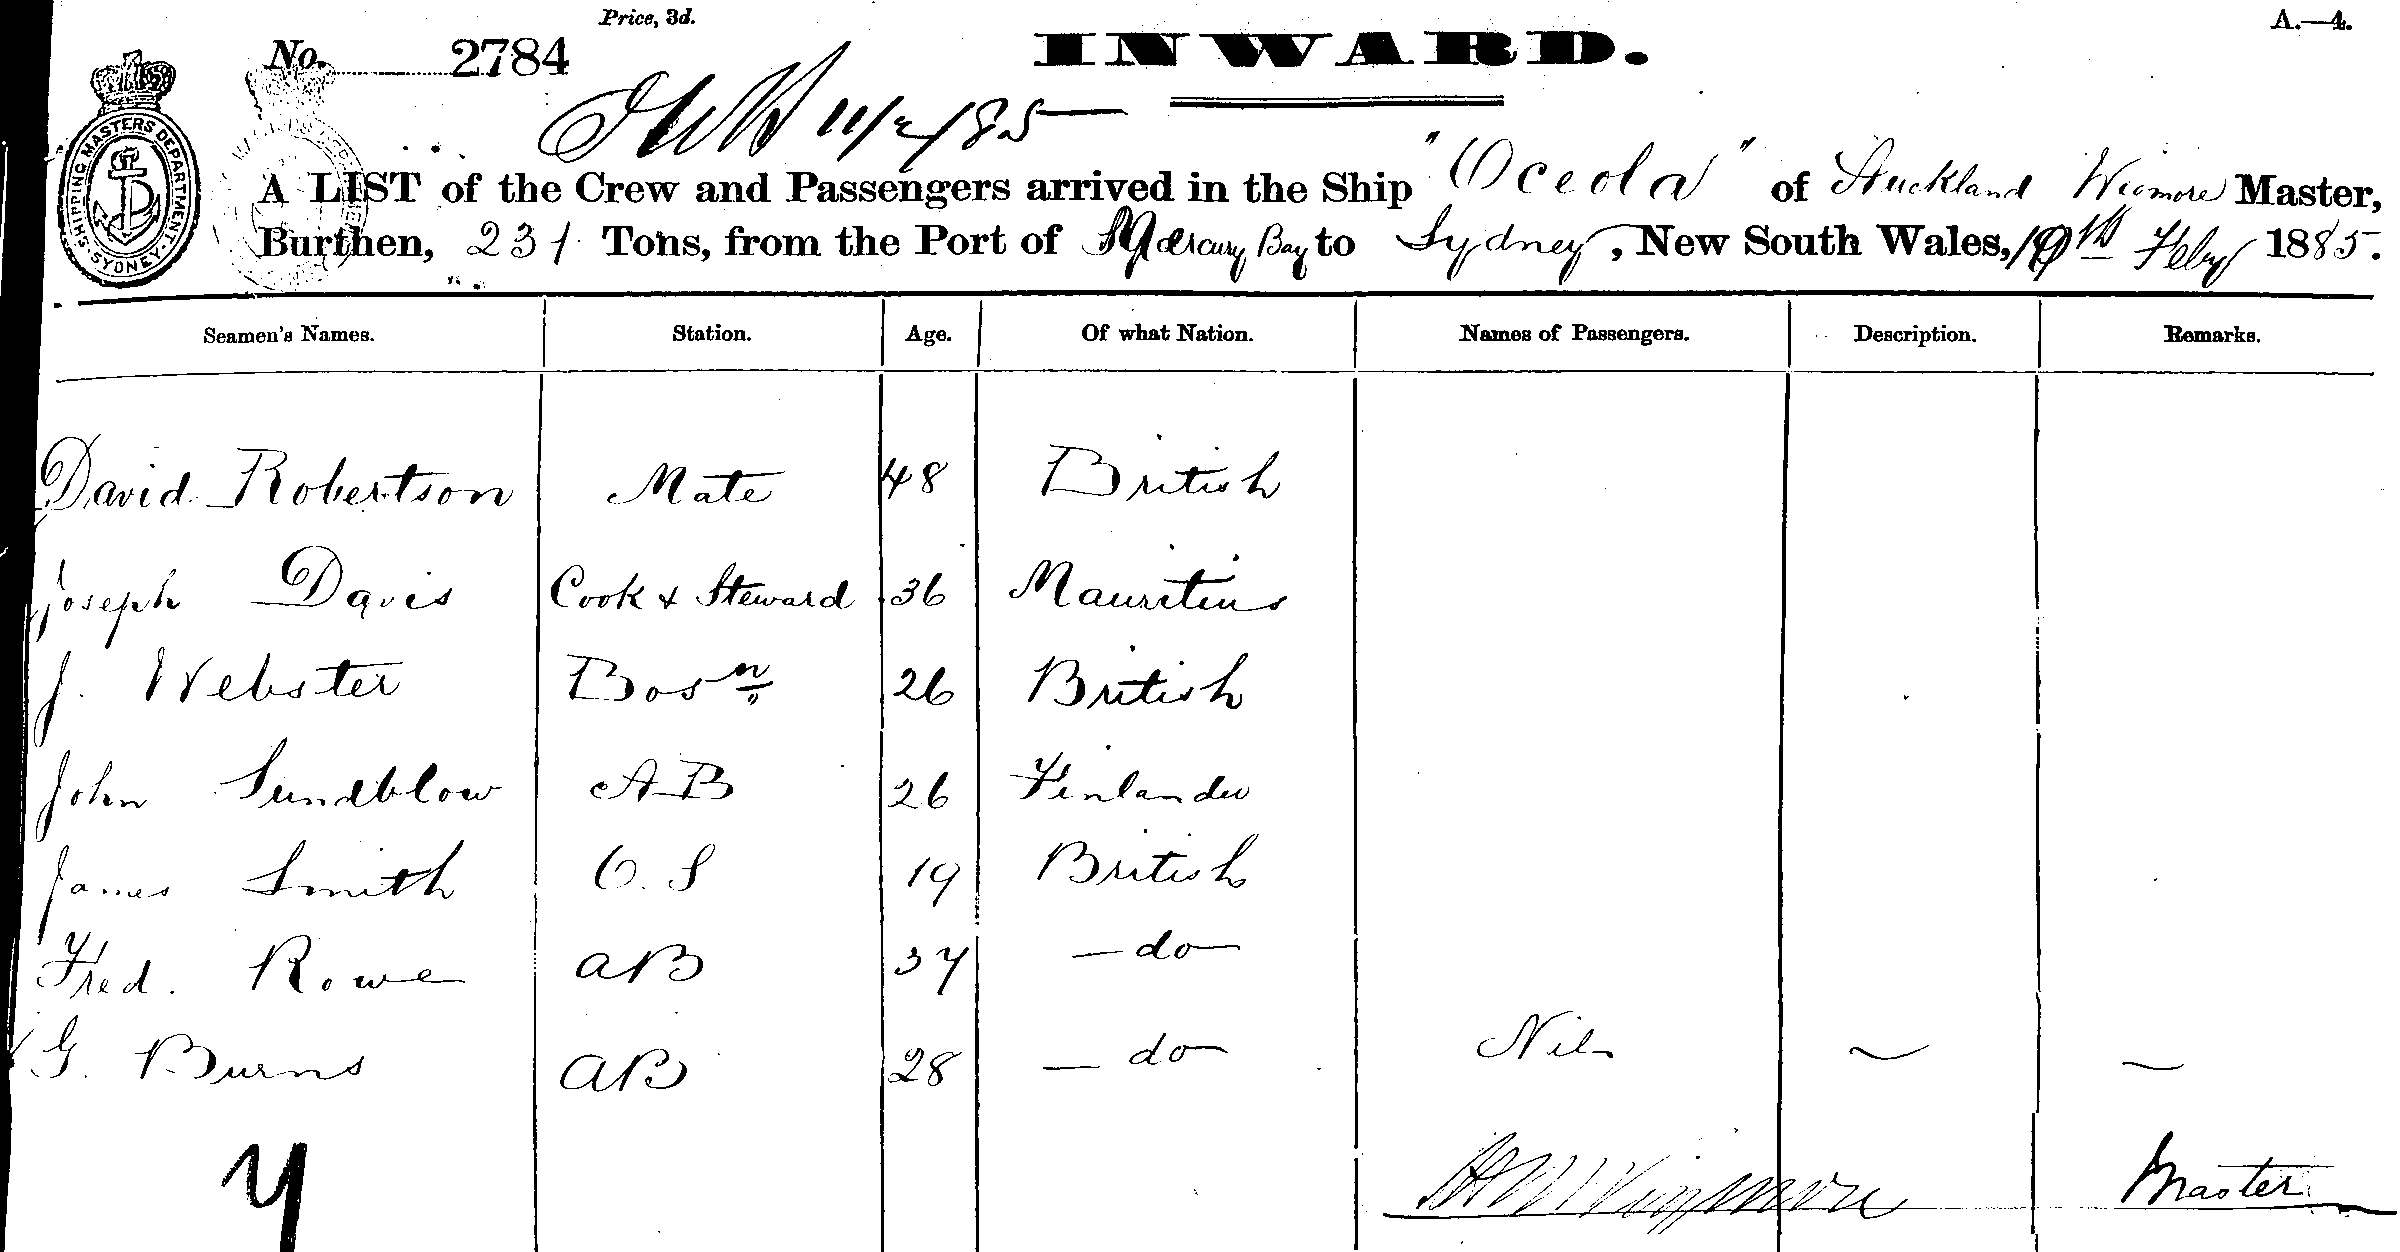 Price, 3d.
A.—4.
No. 2784
INWARD.
11/2/85
SHIPPING MASTERS DEPARTMENT · SYDNEY ·
A LIST of the Crew and Passengers arrived in the Ship "Oceola" of Auckland Wigmore Master,
Burthen, 231 Tons, from the Port of Mercury Bay to Sydney, New South Wales, 10th Feby 1885.
Seamen's Names. Station. Age. Of what Nation. Names of Passengers. Description. Remarks.
David Robertson Mate 48 British
Joseph Davis Cook & Steward 36 Mauritius
J. Webster Bosn 26 British
John Sundblow AB 26 Finlander
James Smith O.S 19 British
Fred. Rowe AB 37 — do —
G. Burns AB 28 — do — Nil ~ ~
7 Wigmore Master